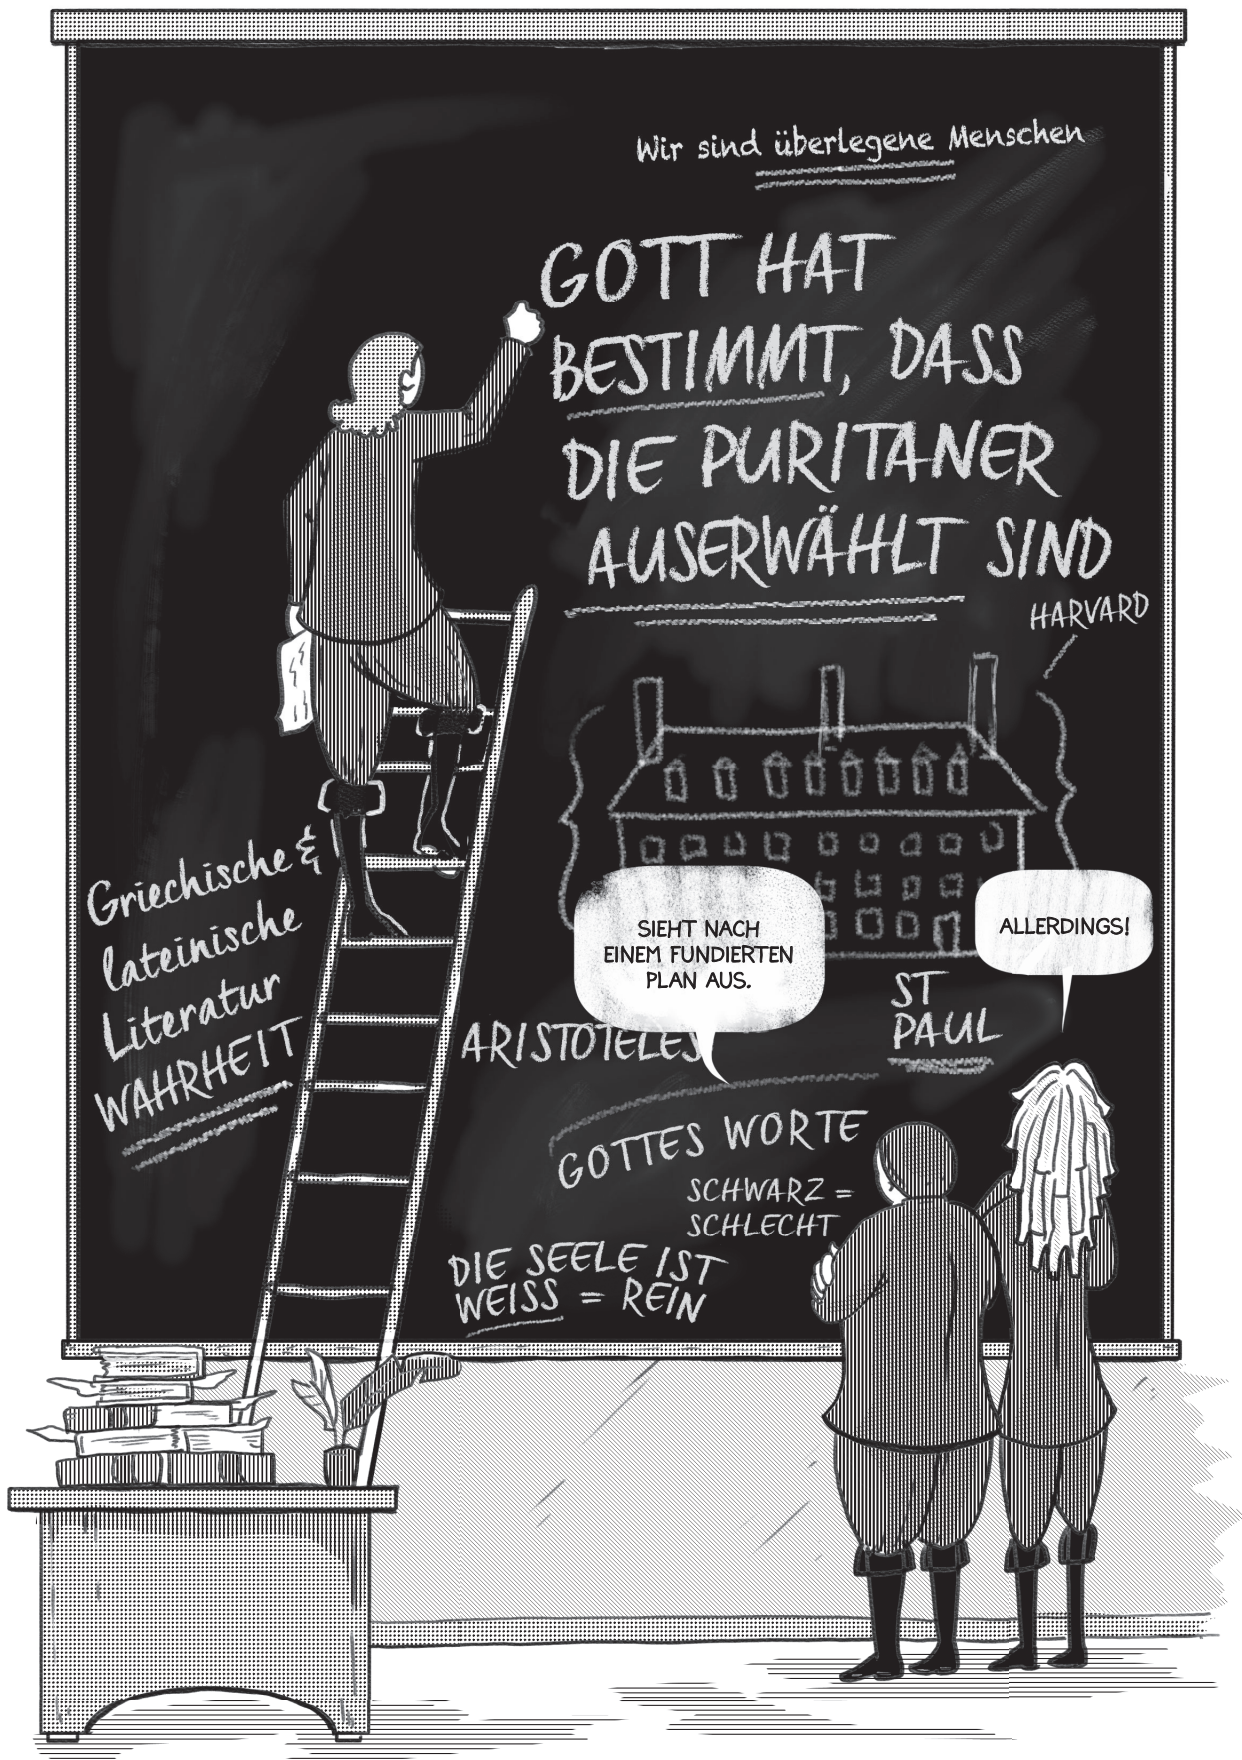 Wir sind überlegene Menschen
GOTT HAT
BESTIMMT, DASS
DIE PURITANER
AUSERWÄHLT SIND
HARVARD
Griechische &
lateinische
Literatur
WAHRHEIT
SIEHT NACH
EINEM FUNDIERTEN
PLAN AUS.
ALLERDINGS!
ST
PAUL
ARISTOTELES
GOTTES WORTE
SCHWARZ =
SCHLECHT
DIE SEELE IST
WEISS = REIN